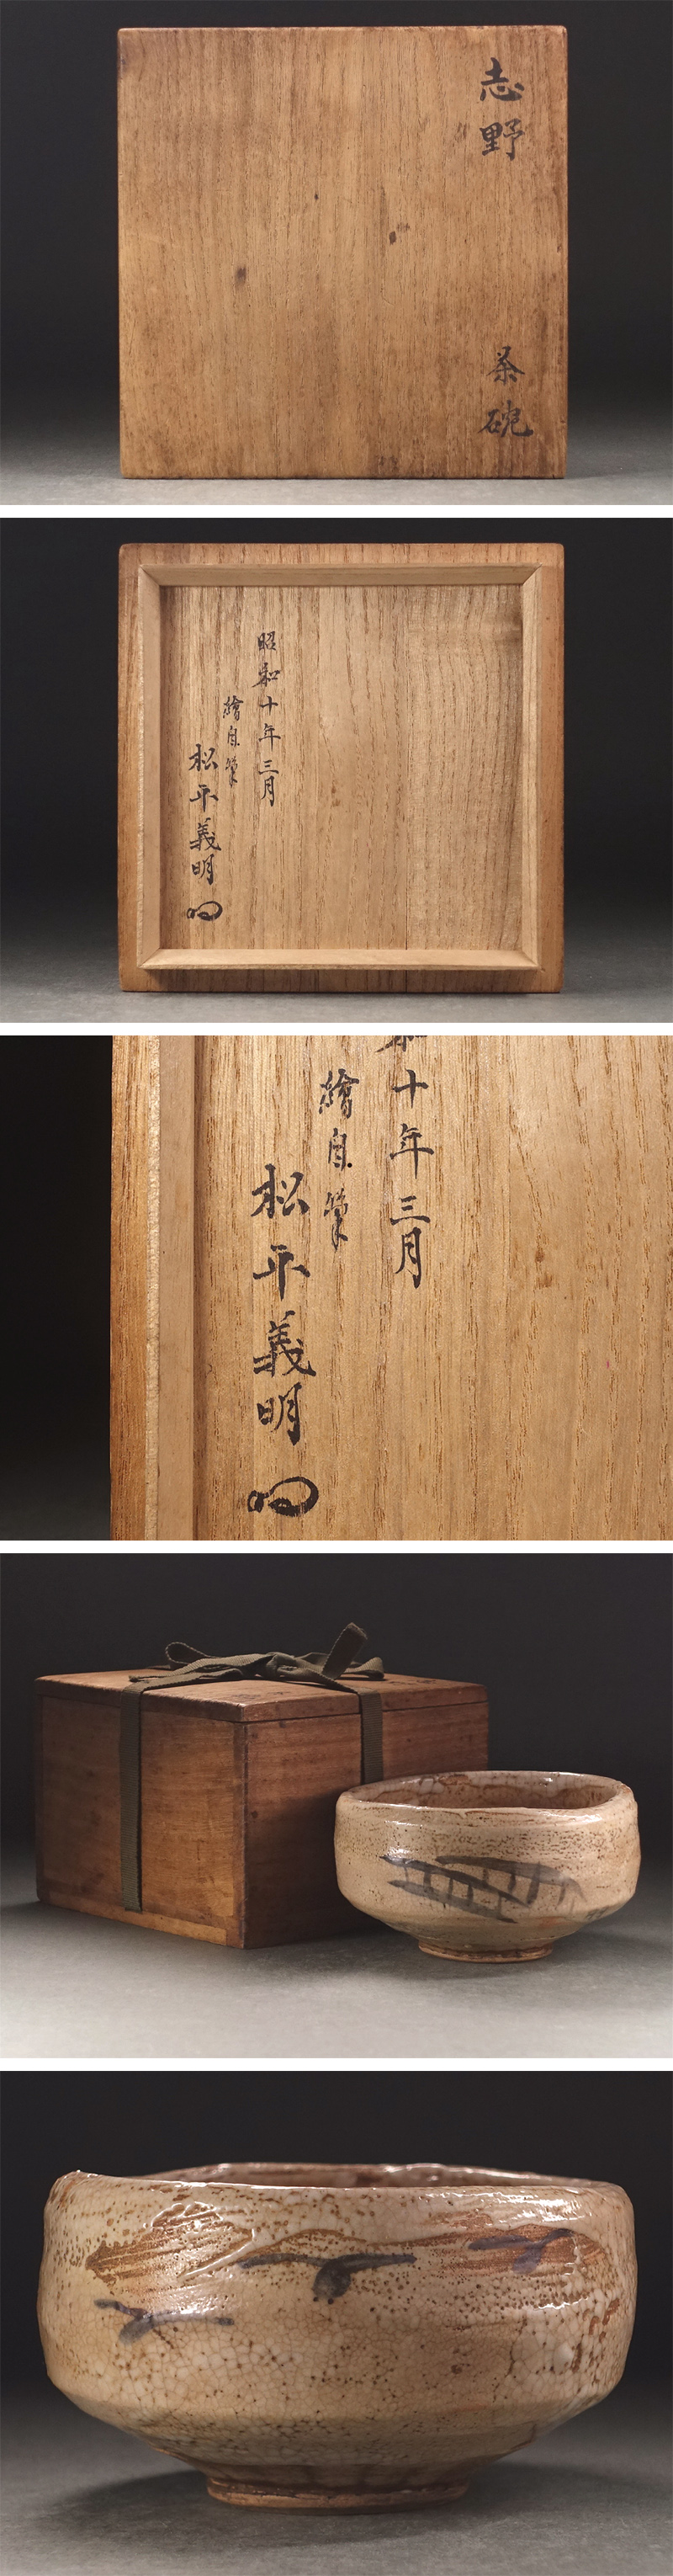 志野
茶碗
昭和十年三月
繪自筆
松平義明
十年三月
繪自筆
松平義明